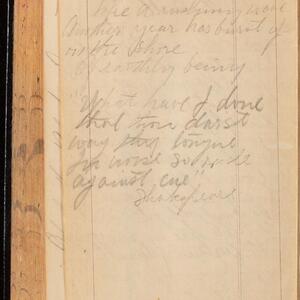 like a rushing wave
Another year has burst up
on the shore
Of earthly being
"What have I done
that thou darst
wag thy tongue
In noise so rude
against me"
Shakspeare